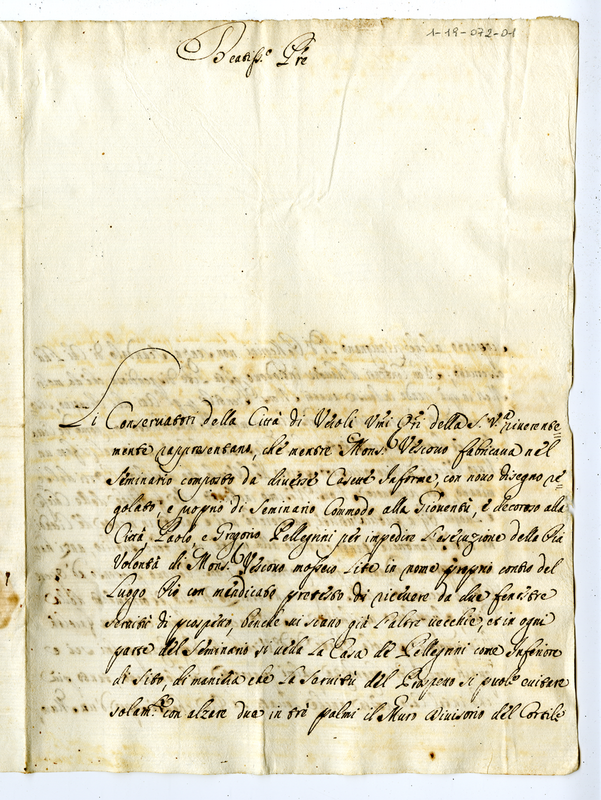 1-19-072-01
Beatiss.o Pre
Li Conservatori della Città di Veroli Umi Ori della S. V.a riverente=
mente rappresentano, che mentre Mons.r Vescovo fabricava nel
Seminario composto da diverse Casette Informe, con novo disegno re=
golato, e proprio di Seminario Commodo alla Gioventù, e decoroso alla
Città, Paolo, e Gregorio Pellegrini per impedire l'esecuzione della Pia
Volontà di Mons.r Vescovo mossero lite in nome proprio contro del
Luogo Pio con mendicato pretesto di ricevere da due fenestre
servitù di prospetto, benche vi siano già l'altre vecchie, et in ogni
parte del Seminario si veda la Casa de Pellegrini come Inferiore
di Sito, di maniera che la Servitù del Prospetto si puole evitare
solam.te con alzare due in trè palmi il Muro divisorio del Cortile